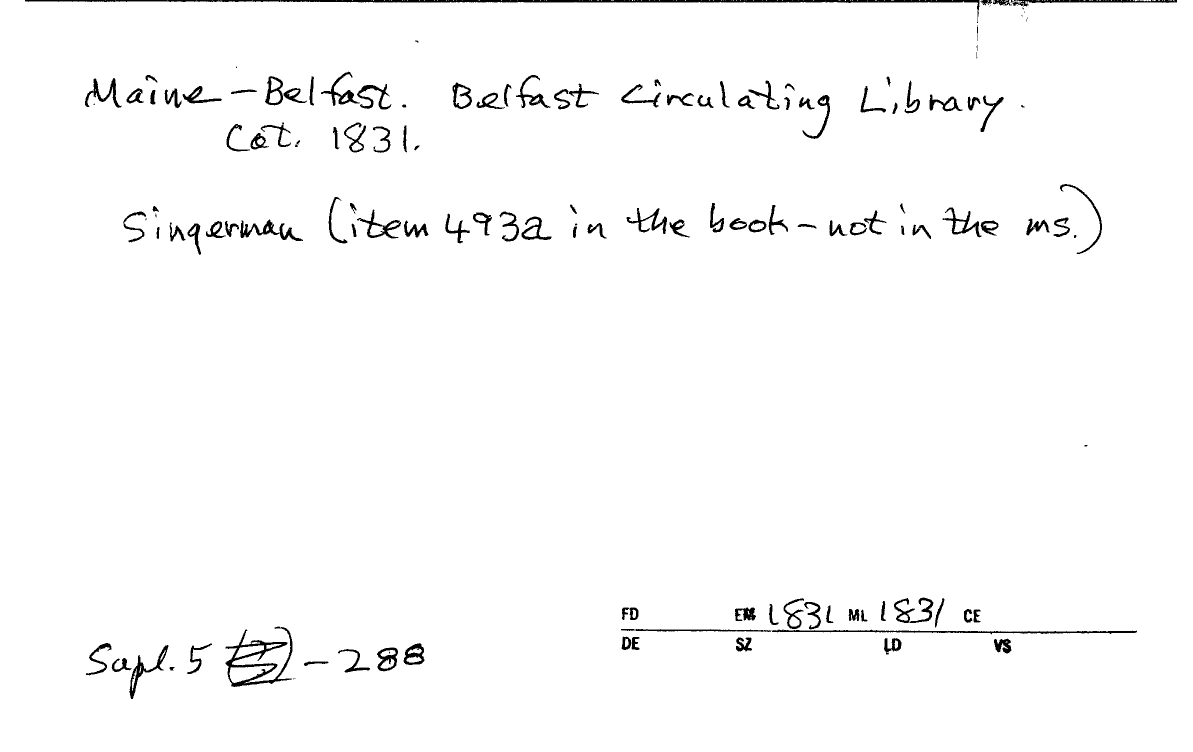 Maine – Belfast. Belfast Circulating Library.
Cat. 1831.
Singerman (item 493a in the book – not in the ms.)
FD EM 1831 ML 1831 CE
DE SZ LD VS
Supl. 5 – 288